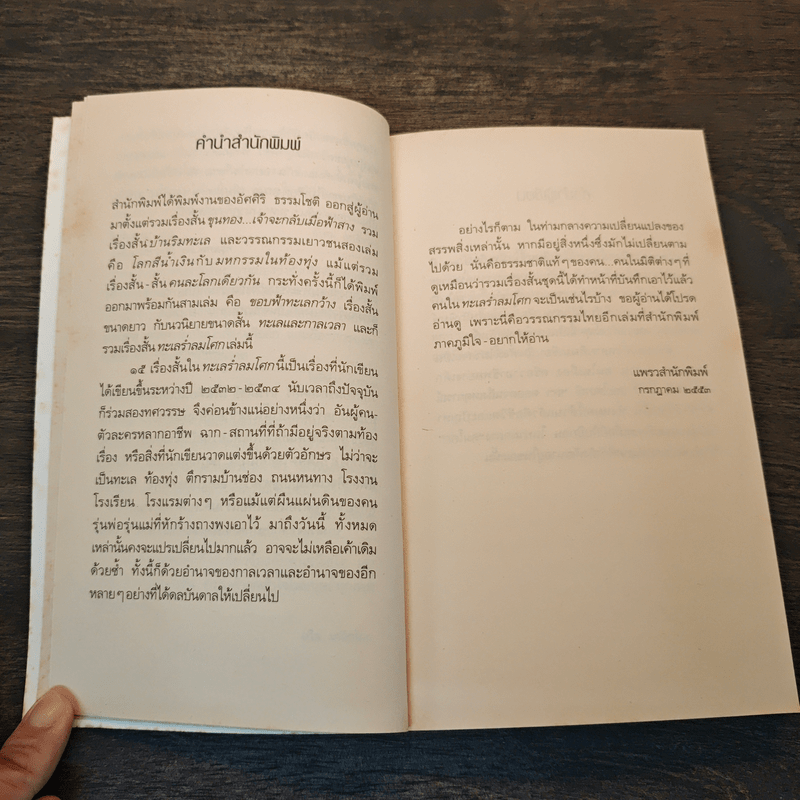 คำนำสำนักพิมพ์
สำนักพิมพ์ได้พิมพ์งานของอัศศิริ ธรรมโชติ ออกสู่ผู้อ่าน
มาตั้งแต่รวมเรื่องสั้น ขุนทอง...เจ้าจะกลับเมื่อฟ้าสาง รวม
เรื่องสั้น บ้านริมทะเล และวรรณกรรมเยาวชนสองเล่ม
คือ โลกสีน้ำเงิน กับ มหกรรมในท้องทุ่ง แม้แต่รวม
เรื่องสั้น - สั้น คนละโลกเดียวกัน กระทั่งครั้งนี้ก็ได้พิมพ์
ออกมาพร้อมกันสามเล่ม คือ ขอบฟ้าทะเลกว้าง เรื่องสั้น
ขนาดยาว กับนวนิยายขนาดสั้น ทะเลและกาลเวลา และก็
รวมเรื่องสั้น ทะเลร่ำลมโศก เล่มนี้
๑๕ เรื่องสั้นใน ทะเลร่ำลมโศก นี้เป็นเรื่องที่นักเขียน
ได้เขียนขึ้นระหว่างปี ๒๕๓๒ - ๒๕๓๔ นับเวลาถึงปัจจุบัน
ก็ร่วมสองทศวรรษ จึงค่อนข้างแน่อย่างหนึ่งว่า อันผู้คน-
ตัวละครหลากอาชีพ ฉาก - สถานที่ที่ถ้ามีอยู่จริงตามท้อง
เรื่อง หรือสิ่งที่นักเขียนวาดแต่งขึ้นด้วยตัวอักษร ไม่ว่าจะ
เป็นทะเล ท้องทุ่ง ตึกรามบ้านช่อง ถนนหนทาง โรงงาน
โรงเรียน โรงแรมต่างๆ หรือแม้แต่ผืนแผ่นดินของคน
รุ่นพ่อรุ่นแม่ที่หักร้างถางพงเอาไว้ มาถึงวันนี้ ทั้งหมด
เหล่านั้นคงจะแปรเปลี่ยนไปมากแล้ว อาจจะไม่เหลือเค้าเดิม
ด้วยซ้ำ ทั้งนี้ก็ด้วยอำนาจของกาลเวลาและอำนาจของอีก
หลายๆอย่างที่ได้ดลบันดาลให้เปลี่ยนไป
อย่างไรก็ตาม ในท่ามกลางความเปลี่ยนแปลงของ
สรรพสิ่งเหล่านั้น หากมีอยู่สิ่งหนึ่งซึ่งมักไม่เปลี่ยนตาม
ไปด้วย นั่นคือธรรมชาติแท้ๆของคน...คนในมิติต่างๆที่
ดูเหมือนว่ารวมเรื่องสั้นชุดนี้ได้ทำหน้าที่บันทึกเอาไว้แล้ว
คนใน ทะเลร่ำลมโศก จะเป็นเช่นไรบ้าง ขอผู้อ่านได้โปรด
อ่านดู เพราะนี่คือวรรณกรรมไทยอีกเล่มที่สำนักพิมพ์
ภาคภูมิใจ - อยากให้อ่าน
แพรวสำนักพิมพ์
กรกฎาคม ๒๕๕๓